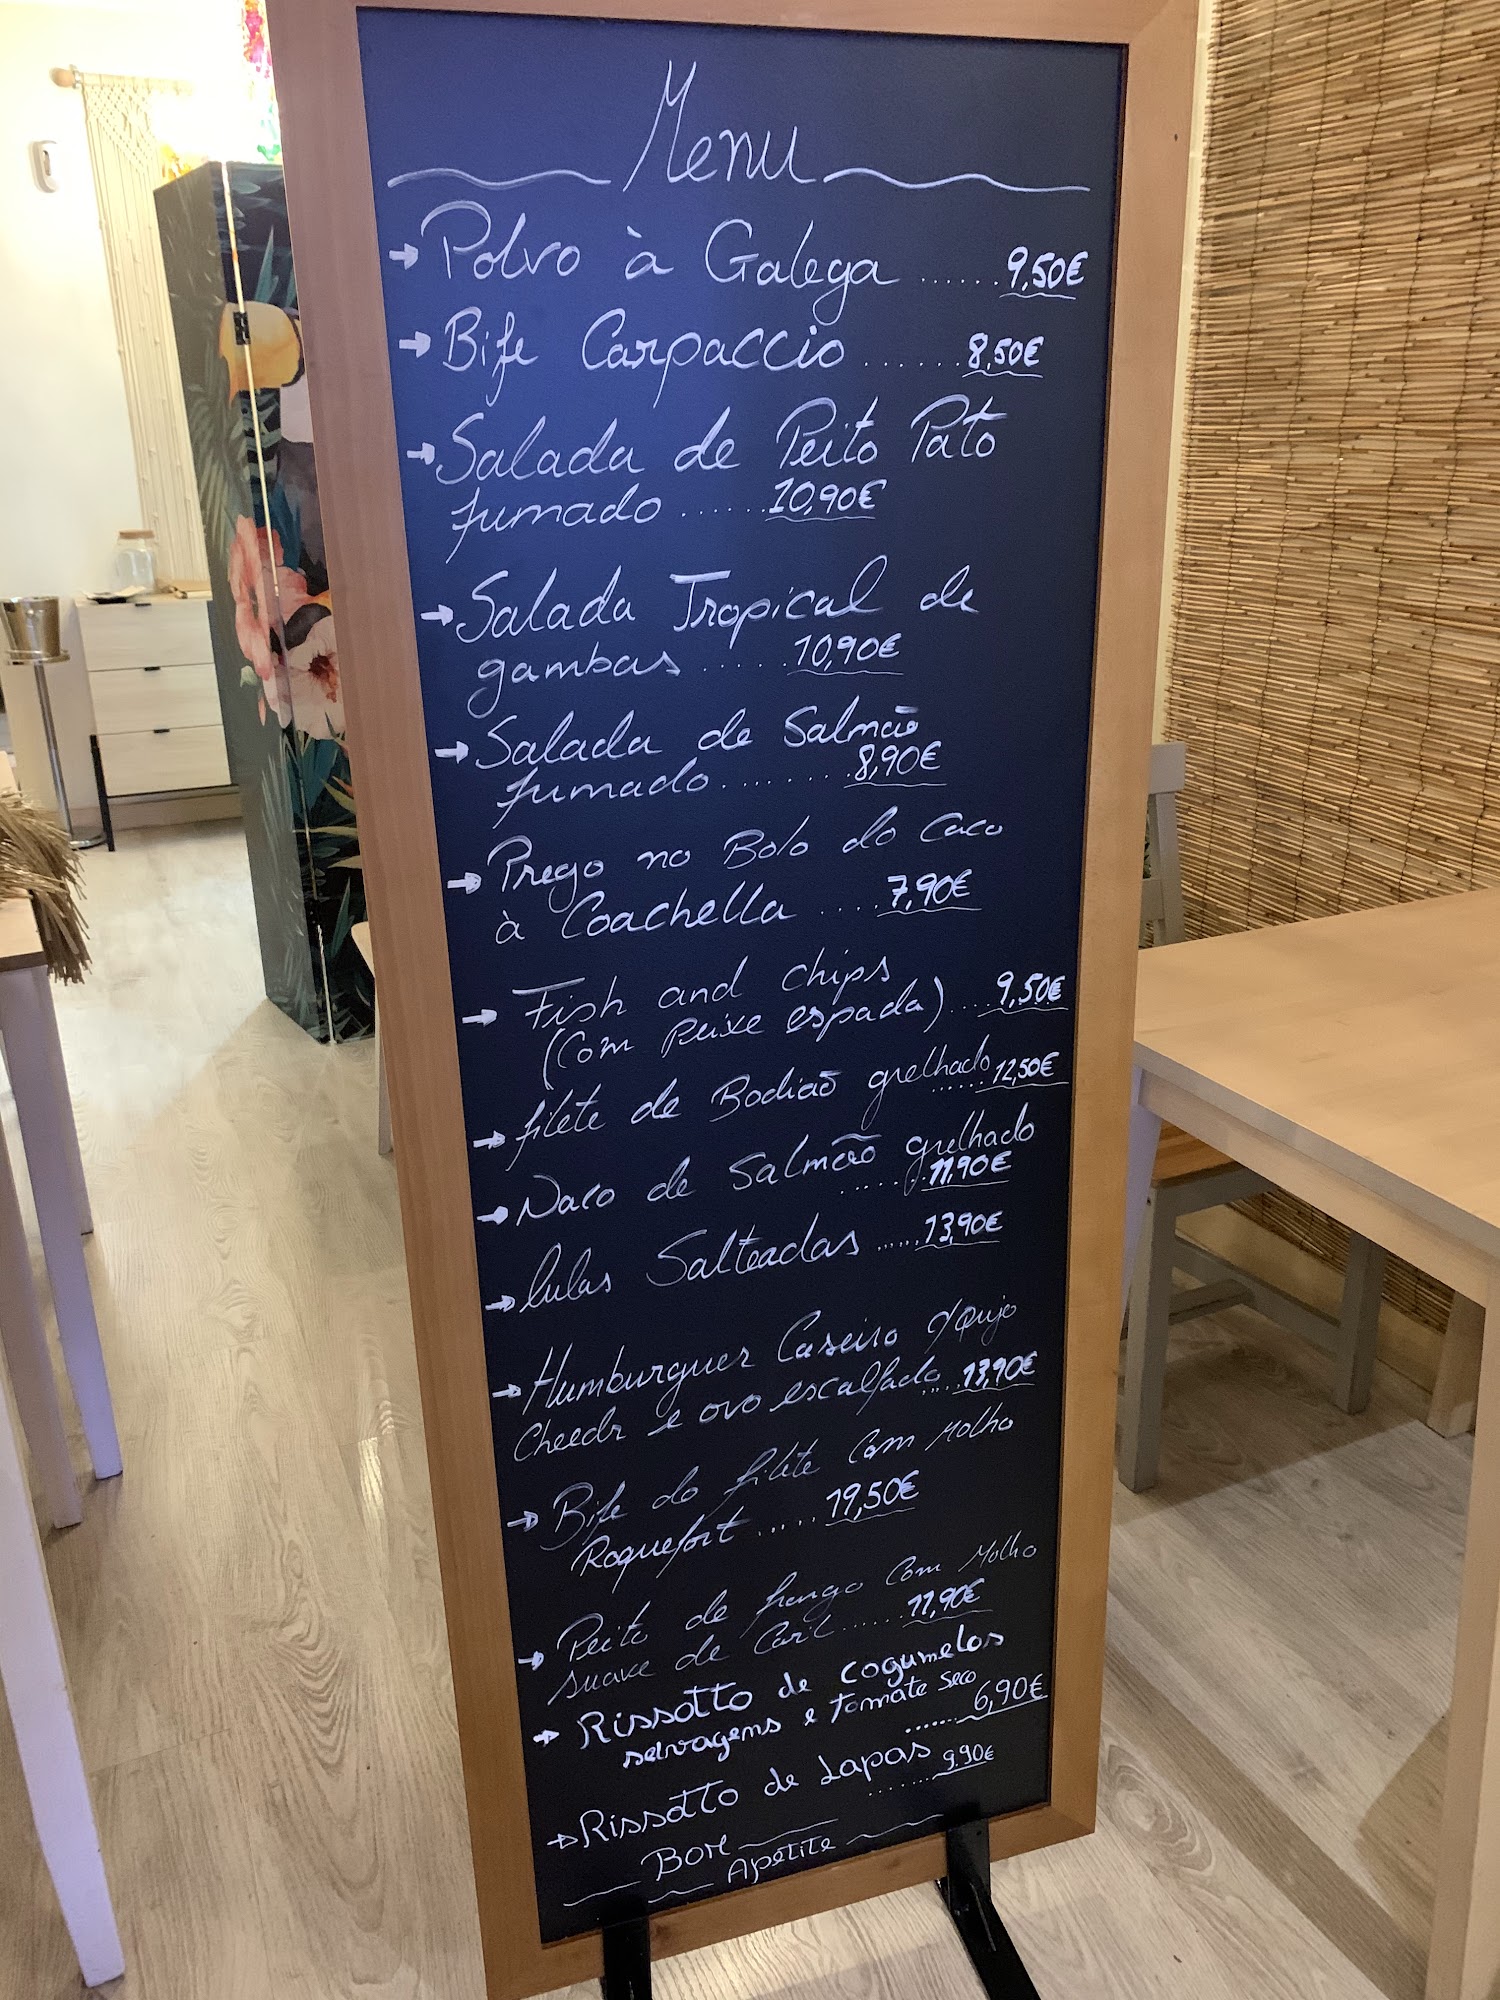 Menu
Polvo à Galega ...... 9,50€
Bife Carpaccio ...... 8,50€
Salada de Peito Pato
fumado ...... 10,90€
Salada Tropical de
gambas ...... 10,90€
Salada de Salmão
fumado ........ 8,90€
Prego no Bolo do Caco
à Coachella .... 7,90€
Fish and chips
(Com Peixe espada) ... 9,50€
filete de Bodião grelhado
...... 12,50€
Naco de Salmão grelhado
...... 11,90€
lulas Salteadas ...... 13,90€
Humburguer Caseiro d'Quijo
Cheedr e ovo escalfado .... 13,90€
Bife do filete Com Molho
Roquefort ...... 19,50€
Peito de frango Com Molho
suave de Caril ...... 11,90€
Rissotto de cogumelos
selvagens e tomate seco
....... 6,90€
Rissotto de Lapas
....... 9.90€
Bom
Apetite